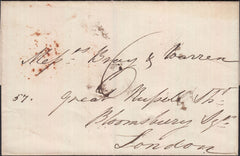 Messrs Bray & Warren
6
57. Great Russell St.
Bloomsbury Sqre
London